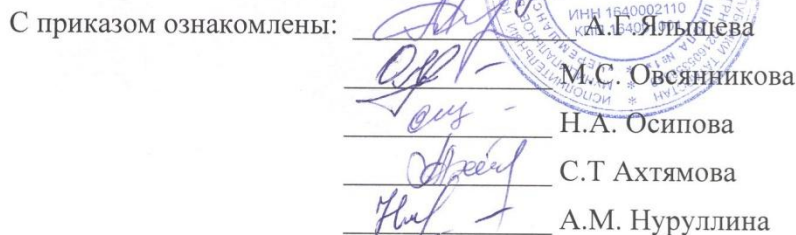 С приказом ознакомлены: А.Г. Ялышева
М.С. Овсянникова
Н.А. Осипова
С.Т Ахтямова
А.М. Нуруллина
ИНН 1640002110